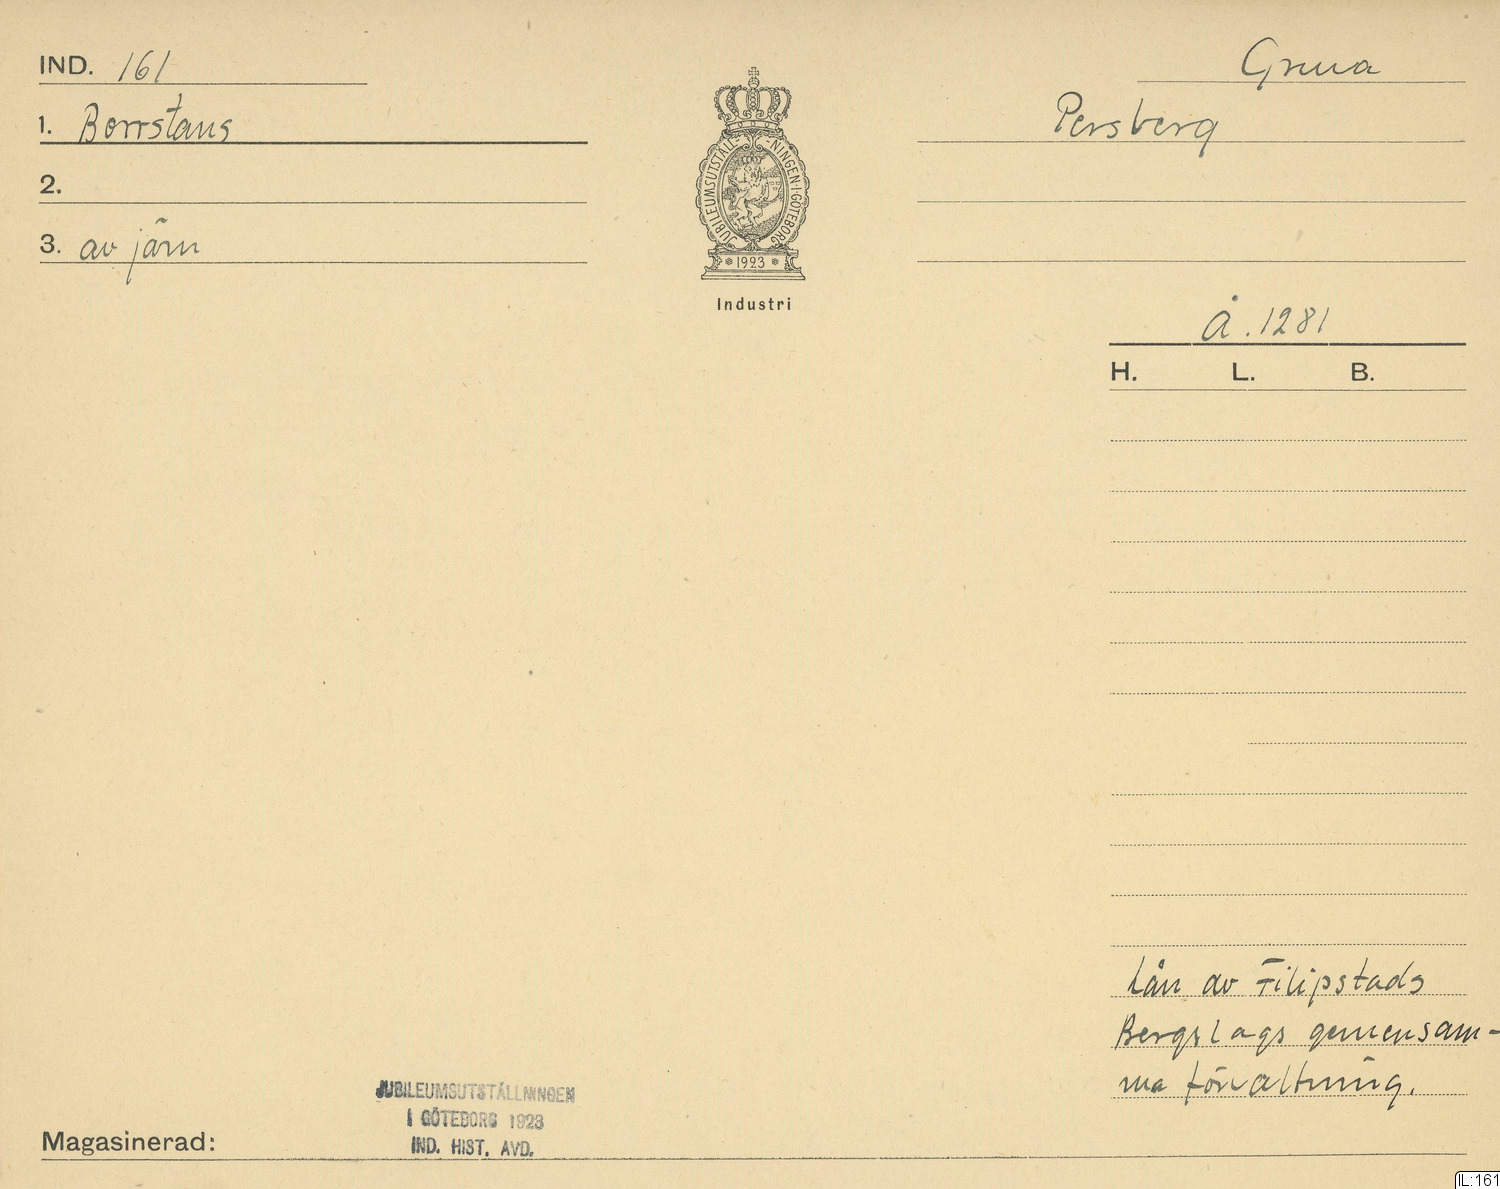 IND. 161
Gruva
1. Borrstång
Persberg
2.
3. av järn
JUBILEUMSUTSTÄLL-NINGEN·I·GÖTEBORG
1923
Industri
Å. 1281
H. L. B.
Lån av Filipstads
Bergslags gemensam-
ma förvaltning.
JUBILEUMSUTSTÄLLNINGEN
I GÖTEBORG 1923
IND. HIST. AVD.
Magasinerad:
IL:161